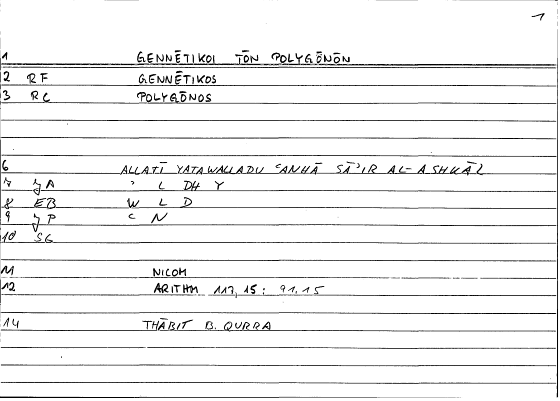 1
1 GENNĒTIKOI TŌN POLYGŌNŌN
2 RF GENNĒTIKOS
3 RC POLYGŌNOS
6 ALLATĪ YATAWALLADU ʿANHĀ SĀʾIR AL-ASHKĀL
7 JA ʾ L DH Y
8 EB W L D
9 JP ʿ N
10 SG
11 NICOM
12 ARITHM 117,15 : 91,15
14 THĀBIT B. QURRA